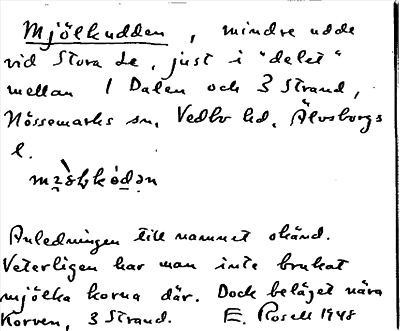 Mjölkudden, mindre udde
vid Stora Le, just i "delet"
mellan 1 Dalen och 3 Strand,
Nössemarks sn, Vedbo hd, Älvsborgs
l.
Anledningen till namnet okänd.
Veterligen har man inte brukat
mjölka korna där. Dock beläget nära
Korven, 3 Strand. E. Rosell 1948